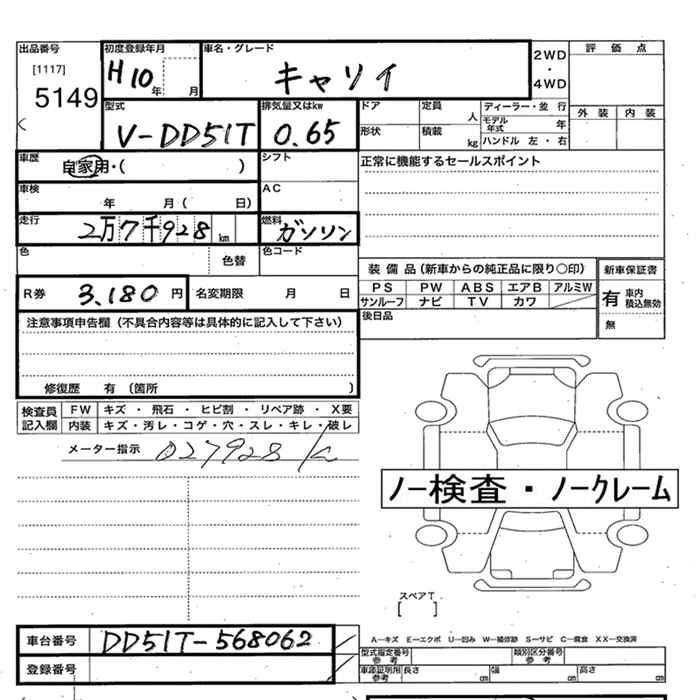 出品番号
[1117]
5149
初度登録年月
H10 年 月
車名・グレード
キャリイ
2WD
・
4WD
評 価 点
外 装 内 装
型式
V-DD51T
排気量又はkw
0.65
ドア
定員 人
ディーラー・並 行
モデル年式 年
形状
積載 kg
ハンドル 左・右
車歴
自家用・( )
シフト
正常に機能するセールスポイント
車検
年 月( 日)
AC
走行
2万7千928 km
燃料
ガソリン
色
色替
色コード
装 備 品(新車からの純正品に限り○印)
新車保証書
PS PW ABS エアB アルミW
サンルーフ ナビ TV カワ
有 車内積込無効
無
R券 3,180 円
名変期限 月 日
後日品
注意事項申告欄(不具合内容等は具体的に記入して下さい)
修復歴 有〔箇所 〕
検査員記入欄
FW キズ・飛石・ヒビ割・リペア跡・X要
内装 キズ・汚レ・コゲ・穴・スレ・キレ・破レ
メーター指示 027928
ノー検査・ノークレーム
スペアT
[ ]
車台番号 DD51T-568062
登録番号
A―キズ E―エクボ U―凹み W―補修跡 S―サビ C―腐食 XX―交換済
型式指定番号 参考
類別区分番号 参考
車庫証明用 参考
長さ cm 幅 cm 高さ cm